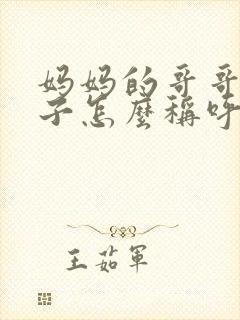 妈妈的哥哥
子怎麽稱呼
王茹軍